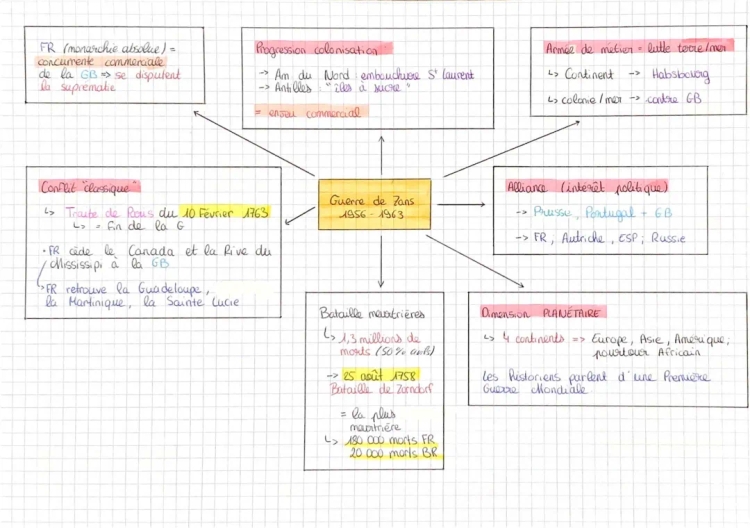 FR (monarchie absolue) =
concurrente commerciale
de la GB => se disputent
la suprématie
Progression colonisation
-> Am du Nord : embouchure St Laurent
-> Antilles : "îles à sucre"
= enjeu commercial
Armée de métier = lutte terre/mer
↳ Continent -> Habsbourg
↳ colonie/mer -> contre GB
Conflit "classique"
↳ Traité de Paris du 10 Février 1763
↳ = Fin de la G
• FR cède le Canada et la Rive du
Mississipi à la GB
↳ FR retrouve la Guadeloupe,
la Martinique, la Sainte Lucie
Guerre de 7ans
1956 - 1963
Alliance (intérêt politique)
-> Prusse, Portugal + GB
-> FR, Autriche, ESP, Russie
Bataille meurtrières
↳ 1,3 millions de
morts (50%
-> 25 août 1758
Bataille de Zorndorf
= la plus
meurtrière
↳ 180 000 morts FR
20 000 morts BR
Dimension PLANÉTAIRE
↳ 4 continents => Europe, Asie, Amérique,
pourtour Africain
Les historiens parlent d'une Première
Guerre Mondiale